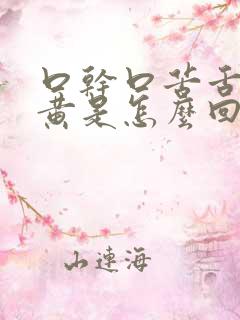 口幹口苦舌
黃是怎麼回
山連海